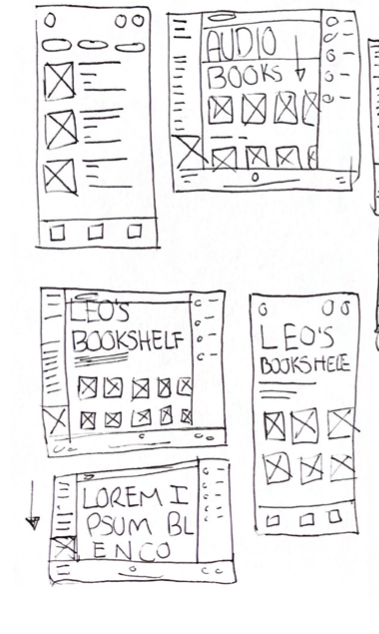 AUDIO
BOOKS
LEO'S
BOOKSHELF
LEO'S
BOOKSHELF
LOREM I
PSUM BL
ENCO